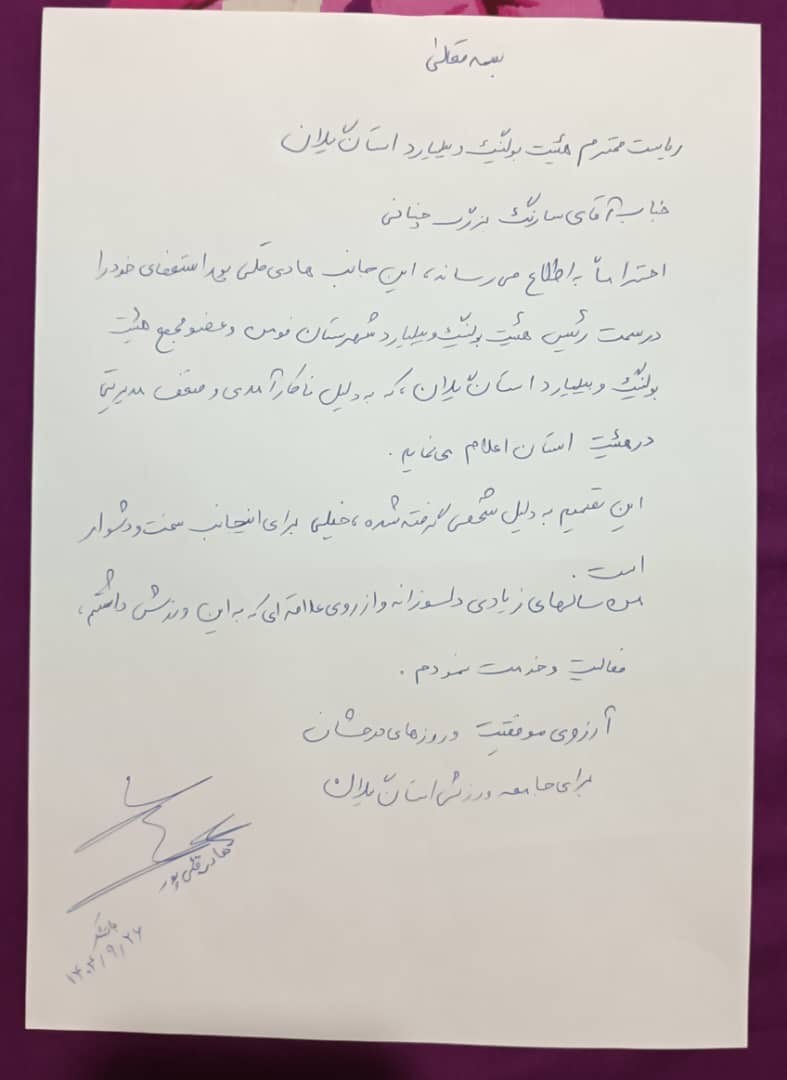 بسمه تعالی
ریاست محترم هیئت بولینگ و بیلیارد استان گیلان
جناب آقای سارنگ بزرگ چنانی
احتراماً به اطلاع می رساند، این جانب هادی قلی پور استعفای خود را
در سمت رئیس هیئت بولینگ و بیلیارد شهرستان فومن و عضو مجمع هیئت
بولینگ و بیلیارد استان گیلان، که به دلیل ناکارآمدی و ضعف مدیریتی
در هیئت استان اعلام می نمایم.
این تصمیم به دلیل شخصی گرفته شده، خیلی برای اینجانب سخت و دشوار
است.
من سالهای زیادی دلسوزانه و از روی علاقه ای که به این ورزش داشتم،
فعالیت و خدمت نمودم.
آرزوی موفقیت و روزهای درخشان
برای جامعه ورزش استان گیلان
هادی قلی پور
باتشکر
۱۴۰۴/۹/۲۶